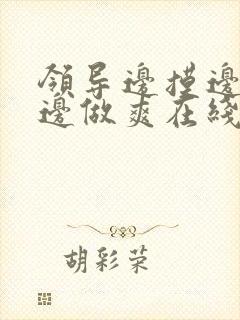 領导邊摸邊
邊做爽在綫
胡彩荣